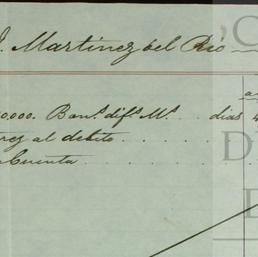 J. Martinez del Rio
0.000. Ban.s dif.s M.s . . dias 4
rez al debito . . . . . .
Cuenta . . . . . . .